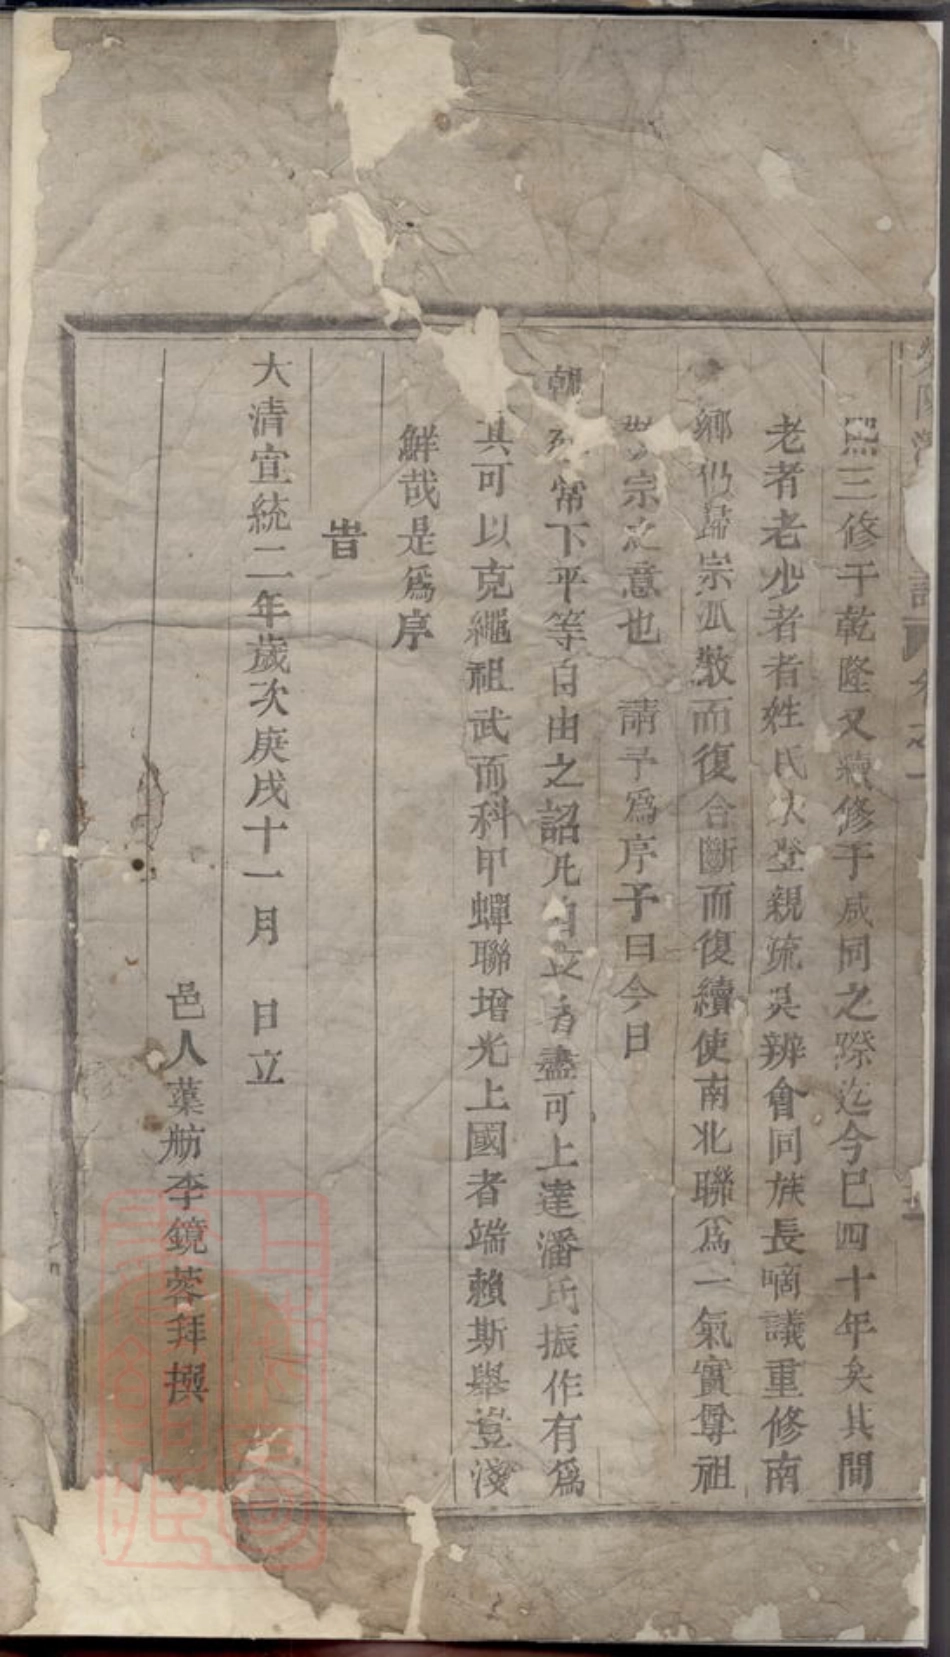 熙三修于乾隆又續修于咸同之際迄今巳四十年矣其間
老者老少者者姓氏次登親疏莫辨會同族長嘀議重修南
鄉仍歸宗派散而復合斷而復續使南北聯爲一氣實尊祖
宗之意也 請予爲序予曰今日
朝 常下平等自由之詔凡自立者盡可上達潘氏振作有爲
其可以克繩祖武而科甲蟬聯增光上國者端賴斯舉豈淺
鮮哉是爲序
旹
大清宣統二年歲次庚戌十一月 日立
邑人葉舫李鏡蓉拜撰